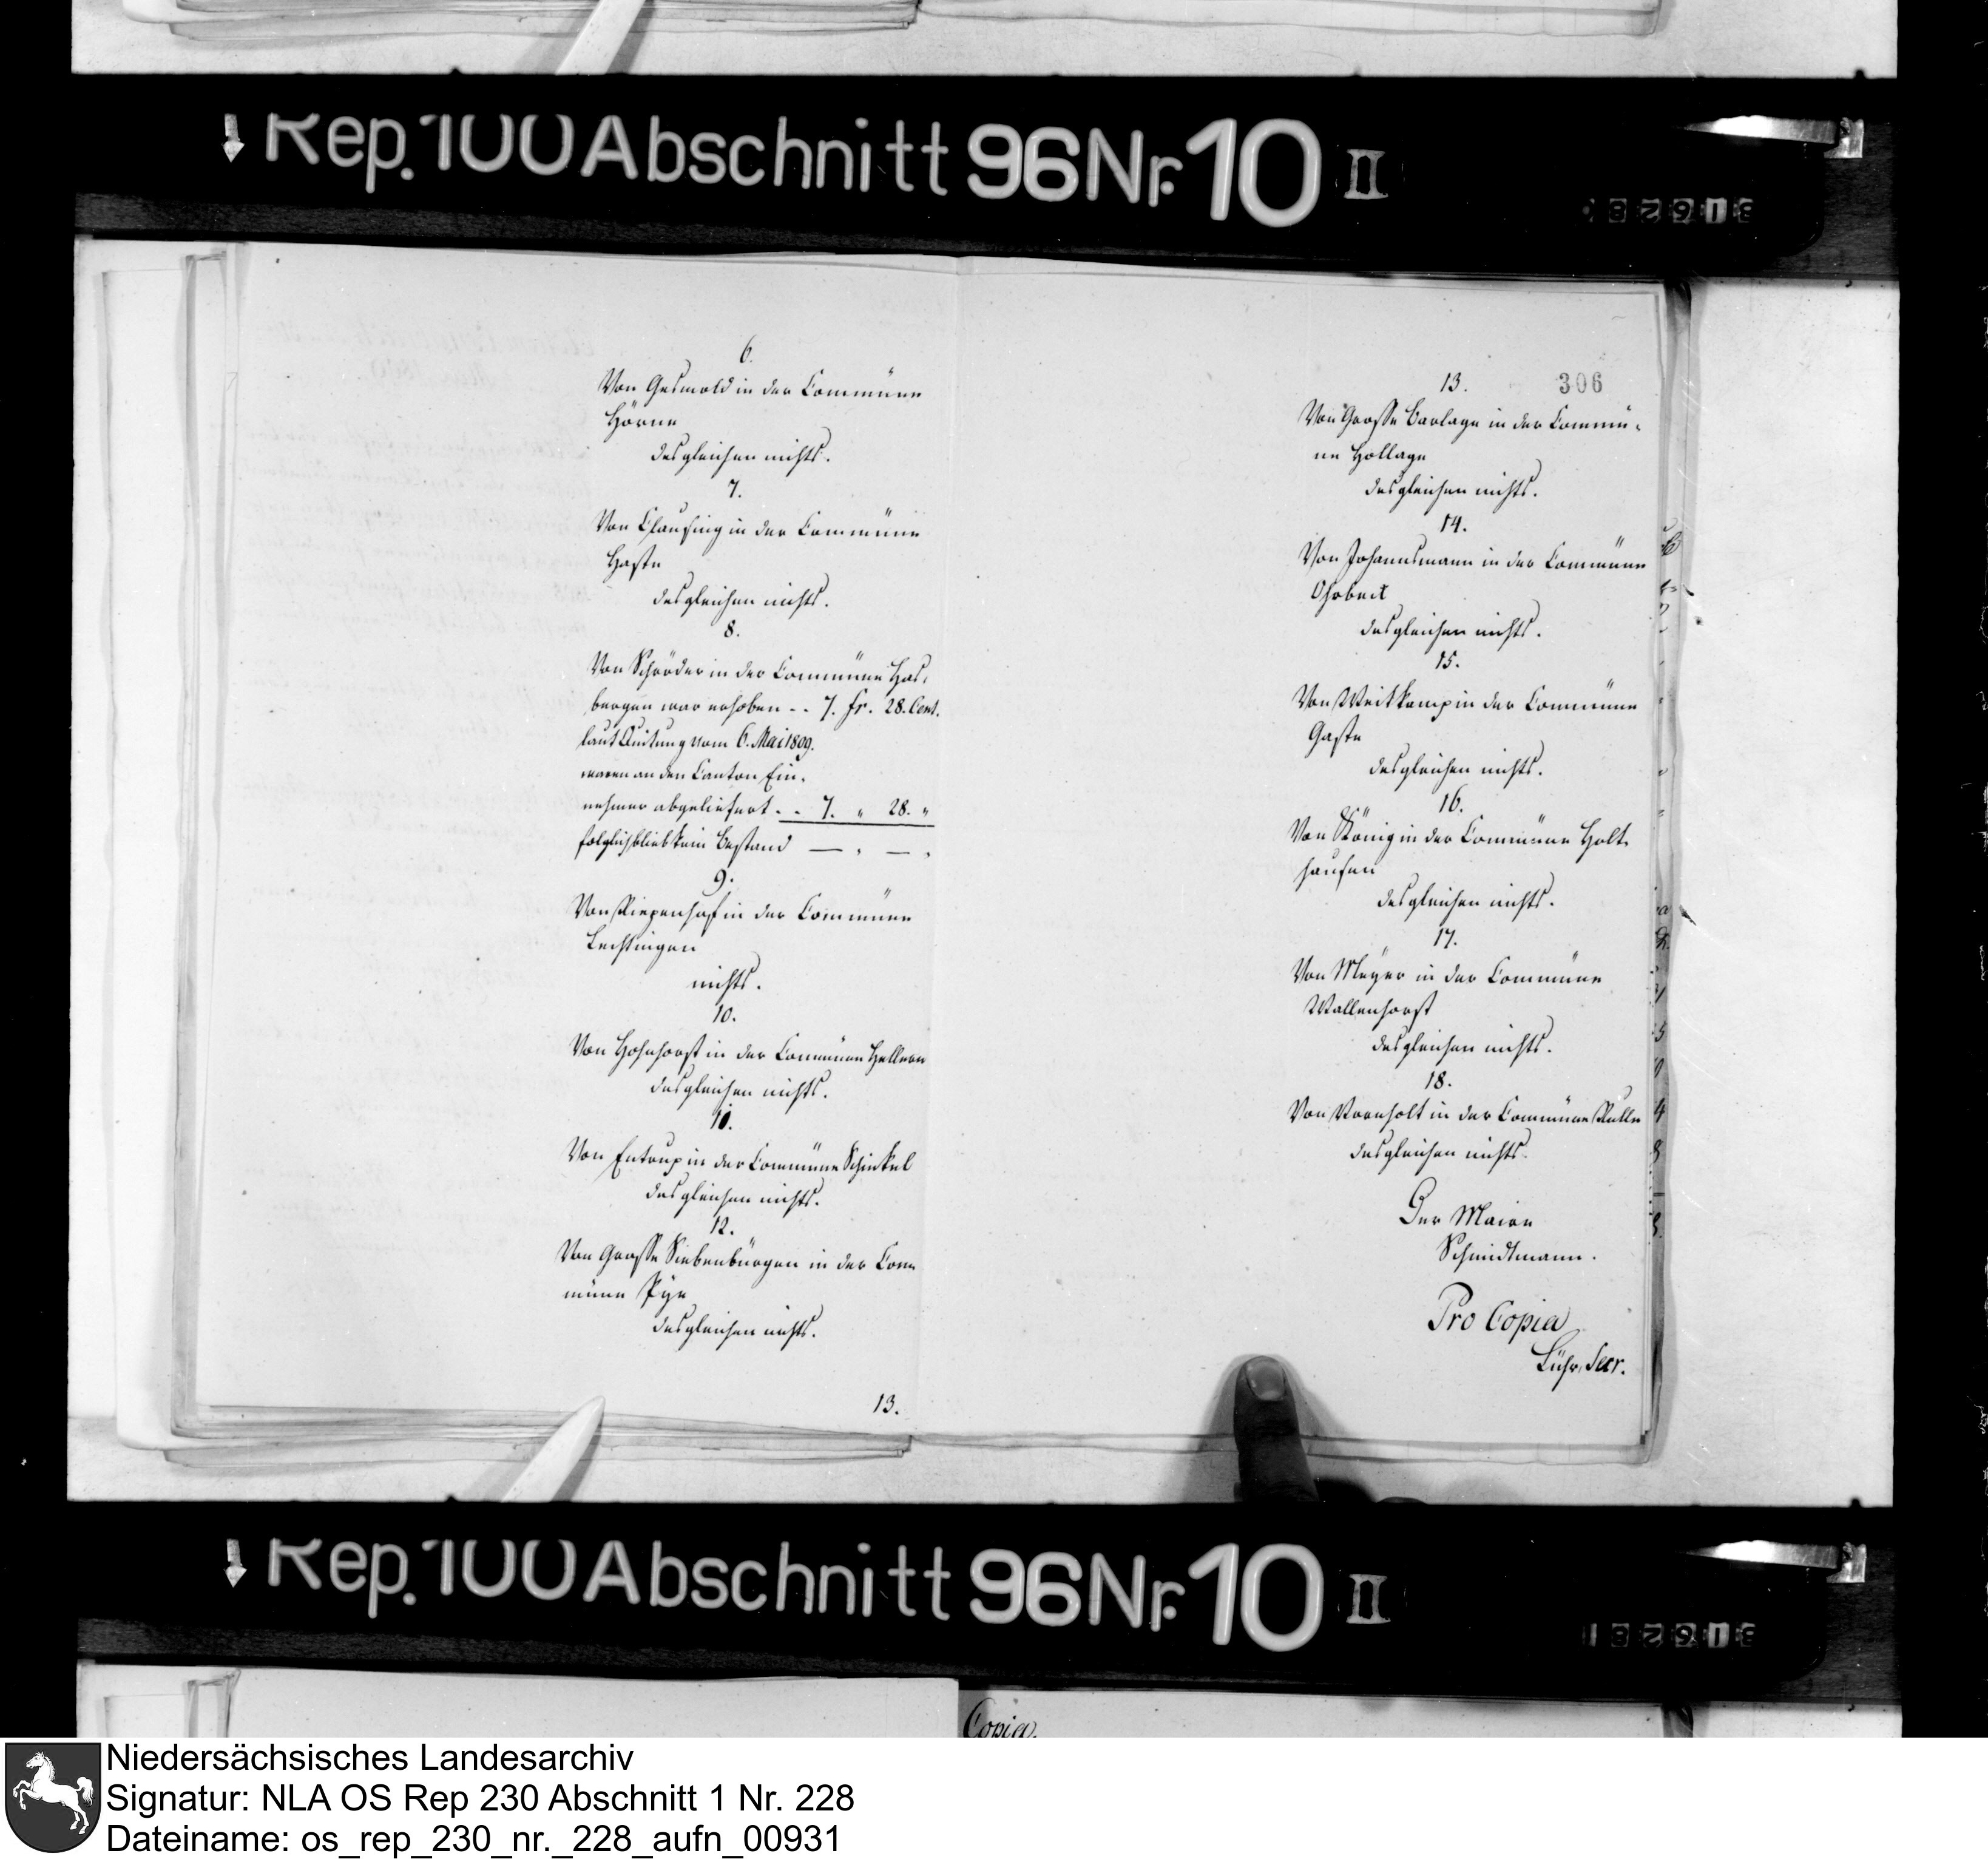 Rep. 100 Abschnitt 96 Nr. 10 II
6.
Von Gesmold in der Commüne
Hörne
desgleichen nichts.
7.
Von Clausing in der Commüne
Haste
desgleichen nichts.
8.
Von Schröder in der Commüne Has,
bergen war erhoben - - 7. fr. 28. Cent.
laut Quitung vom 6. Mai 1809.
waren an den Canton Ein,
nehmer abgeliefert - - 7. " 28. "
folglich blieb kein Bestand — " — "
9.
Von Riepenhof in der Commüne
Lechtingen
nichts.
10.
Von Hohnhorst in der Commüne Hellern
desgleichen nichts.
11.
Von Entrup in der Commüne Schinkel
desgleichen nichts.
12.
Von Grosse Siebenbürgen in der Com
müne Pÿe
desgleichen nichts.
13.
306
13.
Von Grosse Barlage in der Commü,
ne Hollage
desgleichen nichts.
14.
Von Johannsmann in der Commüne
Ohrbeck
desgleichen nichts.
15.
Von Weitkamp in der Commüne
Gaste
desgleichen nichts.
16.
Von König in der Commüne Holt,
hausen
desgleichen nichts.
17.
Von Meÿer in der Commüne
Wallenhorst
desgleichen nichts.
18.
Von Vornholt in der Commüne Rulle
desgleichen nichts.
Der Maire
Schmidtmann.
Pro Copia
Lühr, Secr.
Rep. 100 Abschnitt 96 Nr. 10 II
Copia.
Niedersächsisches Landesarchiv
Signatur: NLA OS Rep 230 Abschnitt 1 Nr. 228
Dateiname: os_rep_230_nr._228_aufn_00931